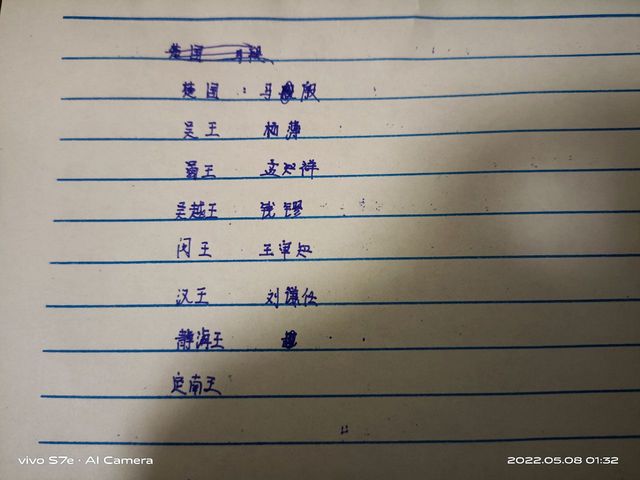 楚国：马殷
吴王 杨薄
蜀王 孟知祥
吴越王 钱镠
闵王 王审知
汉王 刘谦任
静海王
定南王
vivo S7e · AI Camera
2022.05.08 01:32